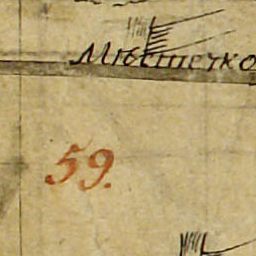 Мѣстечко
59.